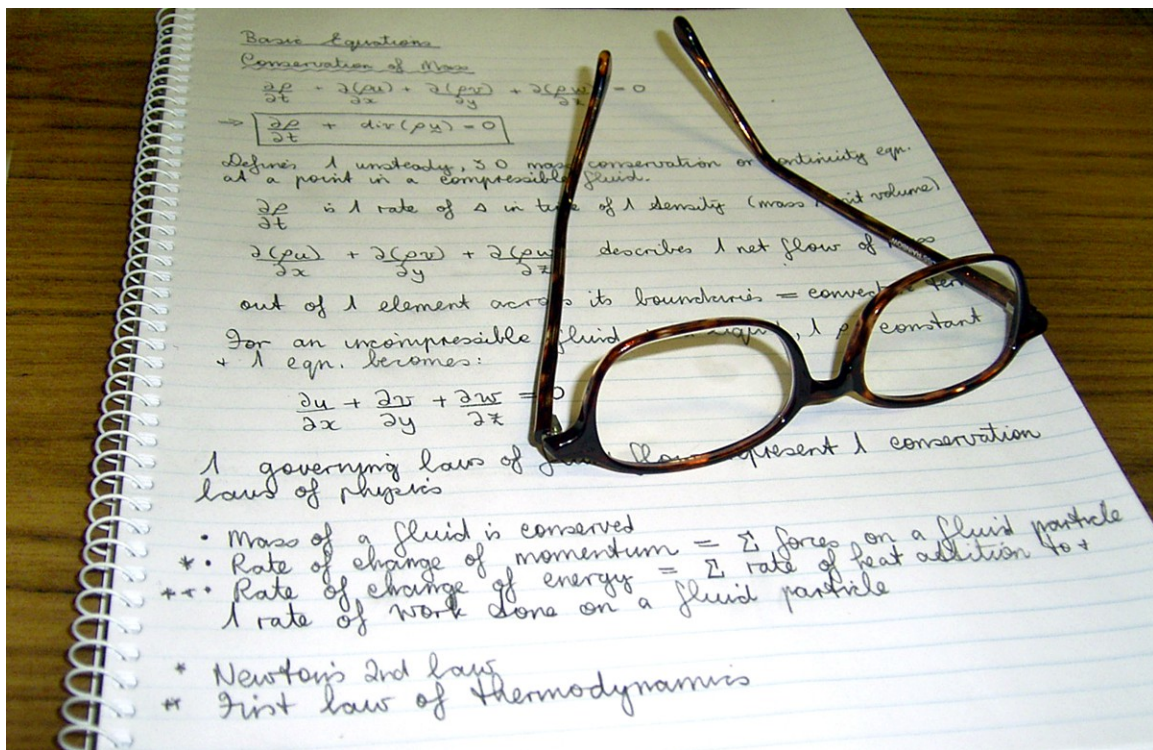 Basic Equations
Conservation of Mass
∂ρ/∂t + ∂(ρu)/∂x + ∂(ρv)/∂y + ∂(ρw)/∂z = 0
⇒ ∂ρ/∂t + div(ρu) = 0
Defines 1 unsteady, 3D mass conservation or continuity eqn.
at a point in a compressible fluid.
∂ρ/∂t is 1 rate of Δ in time of 1 density (mass unit volume)
∂(ρu)/∂x + ∂(ρv)/∂y + ∂(ρw)/∂z describes 1 net flow of mass
out of 1 element across its boundaries = term
For an incompressible fluid, 1 ρ constant
+ 1 eqn. becomes:
∂u/∂x + ∂v/∂y + ∂w/∂z = 0
1 governing laws of flow represent 1 conservation
laws of physics
• Mass of a fluid is conserved
* • Rate of change of momentum = Σ forces on a fluid particle
** • Rate of change of energy = Σ rate of heat addition to +
1 rate of work done on a fluid particle
* Newton's 2nd law
** First law of thermodynamics